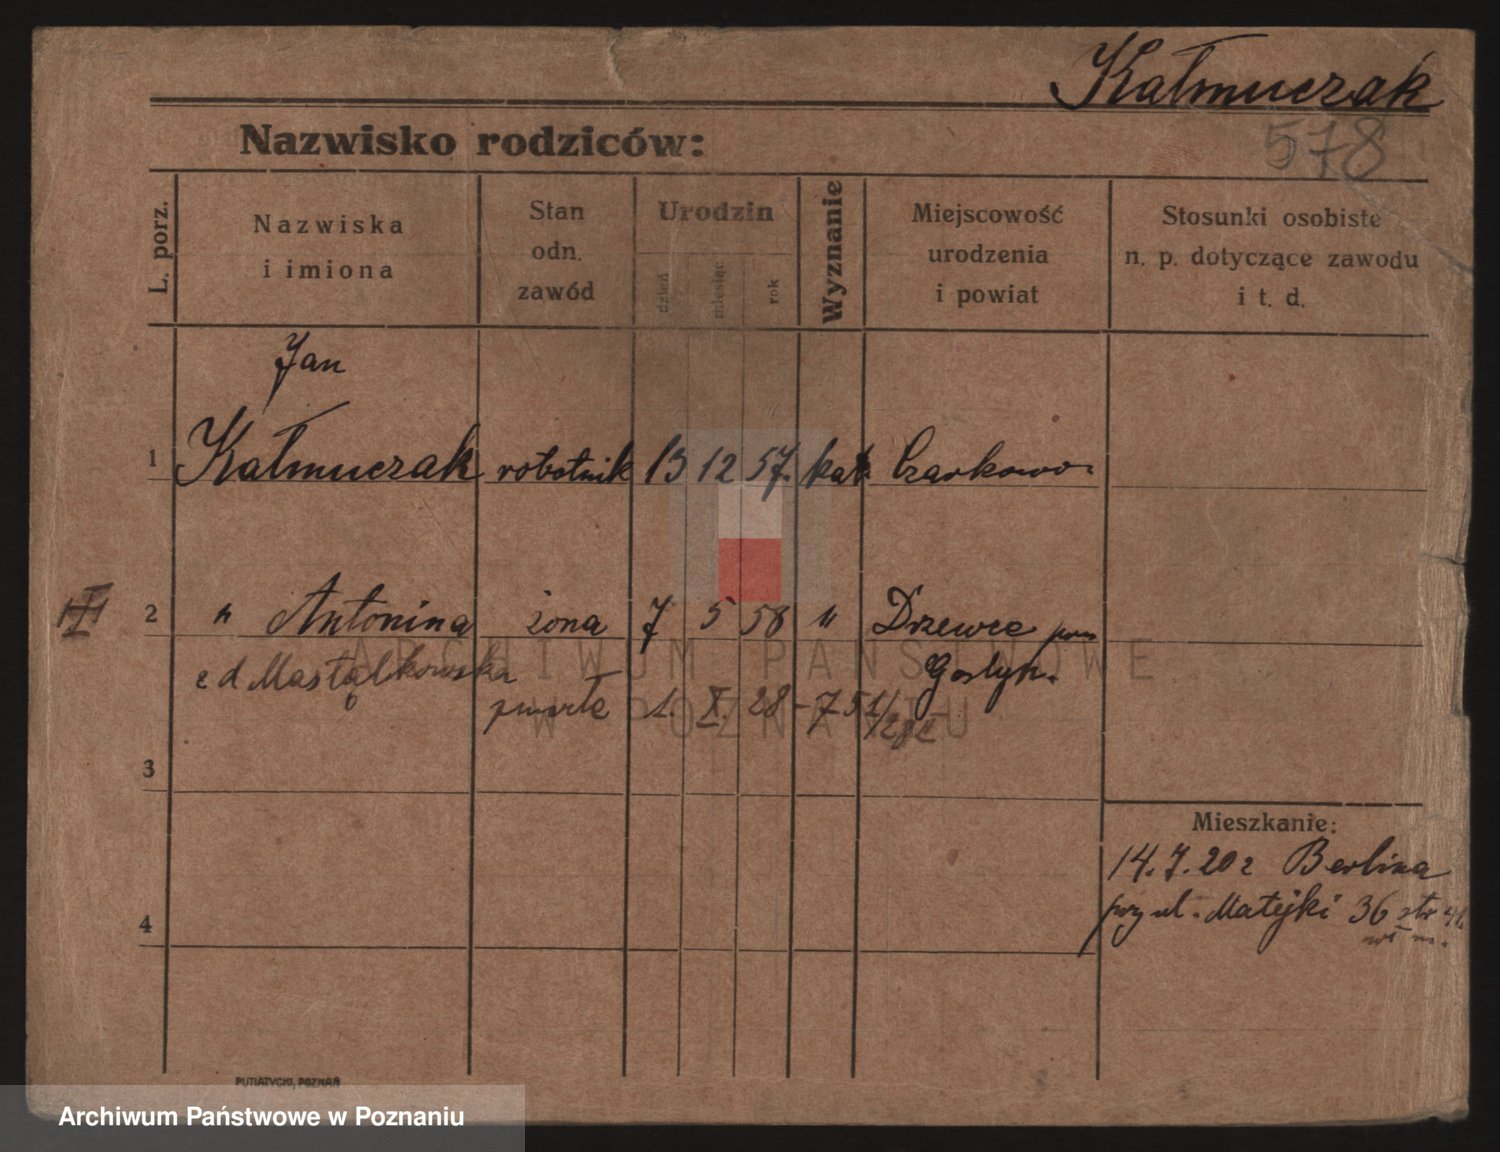 Kałmuczak
Nazwisko rodziców:
578
L. porz.
Nazwiska
i imiona
Stan
odn.
zawód
Urodzin
dzień
miesiąc
rok
Wyznanie
Miejscowość
urodzenia
i powiat
Stosunki osobiste
n. p. dotyczące zawodu
i t. d.
Jan
1 Kałmuczak robotnik 13 12 57. kat. Czarkowo
2 " Antonina żona 7 5 58 " Drzewce pow
z d Mastalkowska Gostyń.
zmarła 1. X. 28 - 751/28
3
Mieszkanie:
14.7.20 z Berlina
przy ul. Matejki 36 str 41.
4
PUTIATYCKI, POZNAŃ
ARCHIWUM PAŃSTWOWE
W POZNANIU
Archiwum Państwowe w Poznaniu